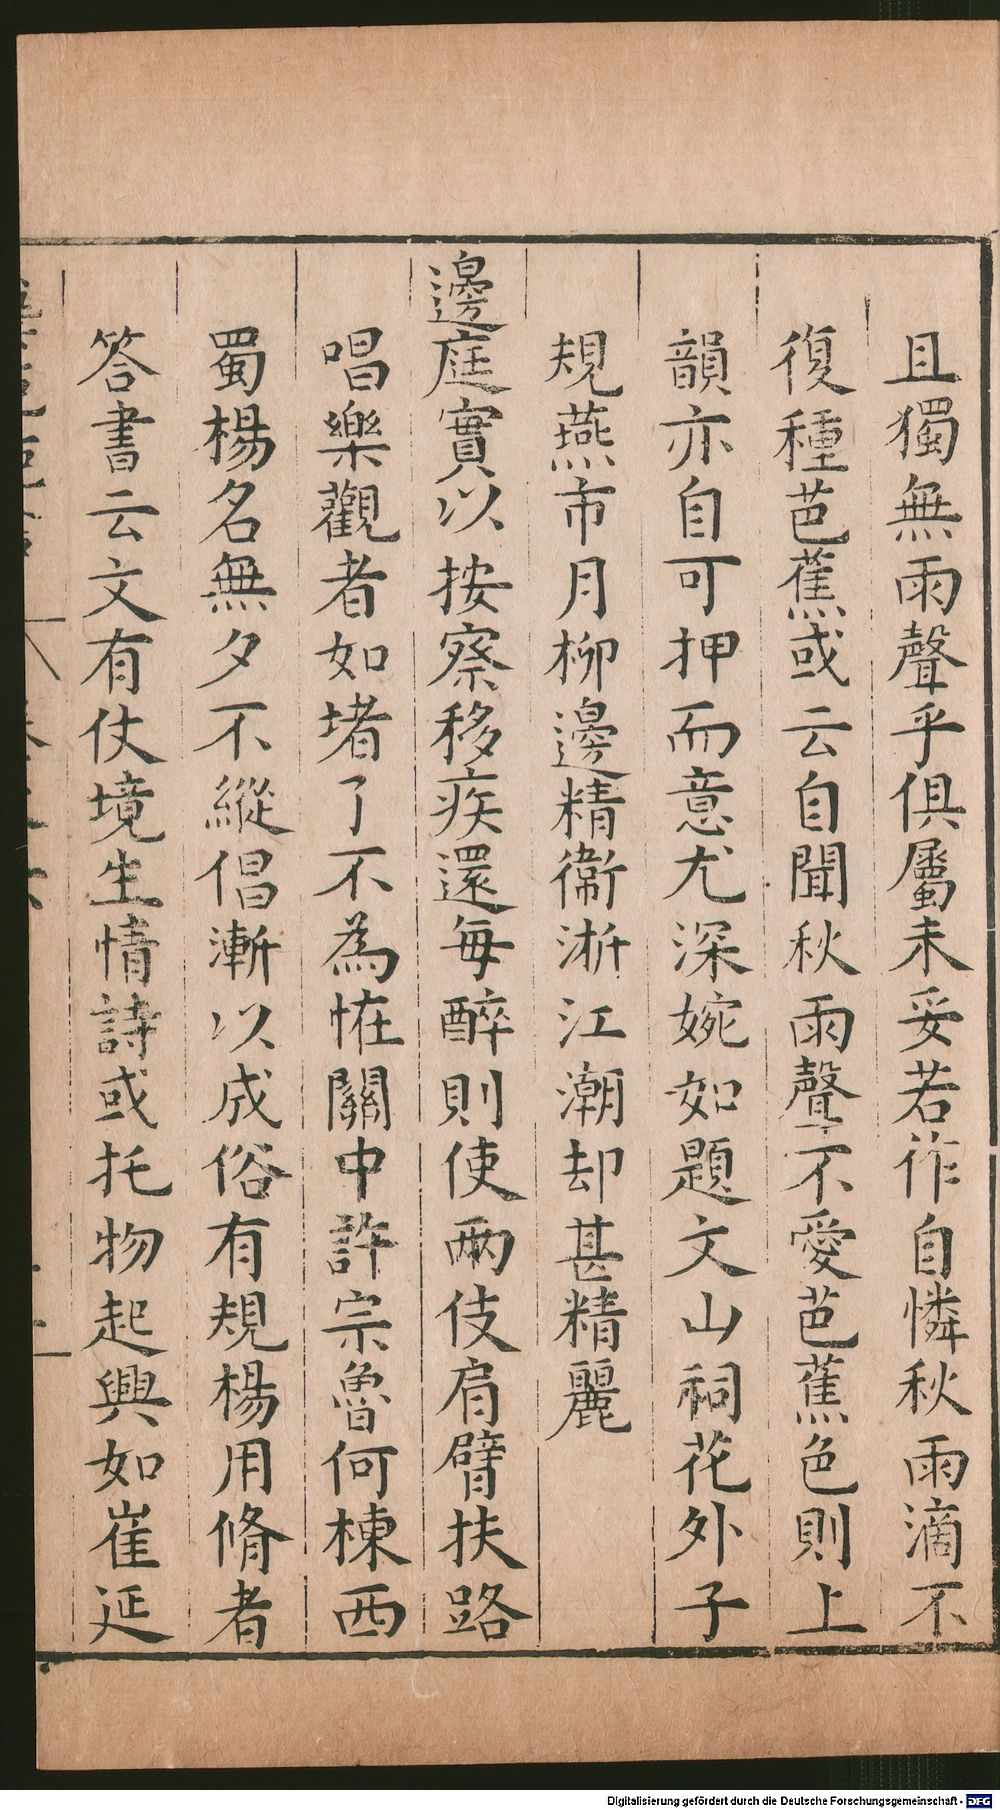 且獨無雨聲乎俱屬未妥若作自憐秋雨滴不
復種芭蕉或云自聞秋雨聲不愛芭蕉色則上
韻亦自可押而意尤深婉如題文山祠花外子
規燕市月柳邊精衞浙江潮却甚精麗
邊庭實以按察移疾還每醉則使兩伎肩臂扶路
唱樂觀者如堵了不為恠關中許宗魯何棟西
蜀楊名無夕不縱倡漸以成俗有規楊用脩者
答書云文有仗境生情詩或托物起興如崔延
Digitalisierung gefördert durch die Deutsche Forschungsgemeinschaft - DFG